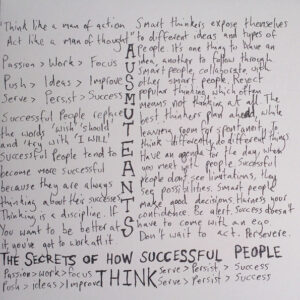 "Think like a man of action
Act like a man of thought"
Passion > Work > Focus
Push > Ideas > Improve
Serve > Persist > Success
Successful People replace
the words 'wish' 'should'
and 'try with 'I WILL'
Successful People tend to
become more successful
because they are always
thinking about their successes
Thinking is a discipline. If
You want to be better at
it, you've got to work at it.
AUSMUTEANTS
Smart thinkers expose themselves
to different ideas and types of
People. It's one thing to have an
idea, another to follow through
Smart people, collaborate with
other smart people. Reject
popular thinking which often
means not thinking at all. The
best thinkers plan ahead, while
leaving room for spontaneity
Think differently do different things
Have an agenda for the day, when
you meet with people Successful
people don't see limitations, they
see possibilities. Smart people
make good decisions. Harness your
confidence. Be alert. Success doesn't
have to come with an ego
Don't wait to act. Persevere.
THE SECRETS OF HOW SUCCESSFUL PEOPLE
THINK
Passion > work > focus
Push > ideas > Improve
Serve > Persist > Success
Serve > Persist > Success